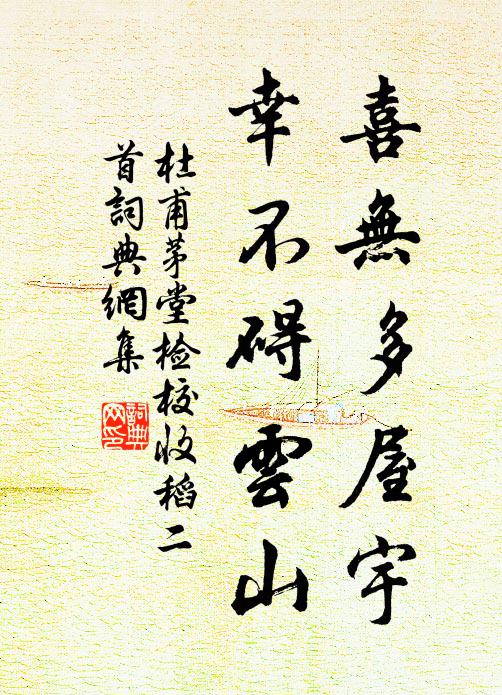 喜無多屋宇
幸不碍雲山
杜甫茅堂检校收稻二
首詞典網集
詞典網印